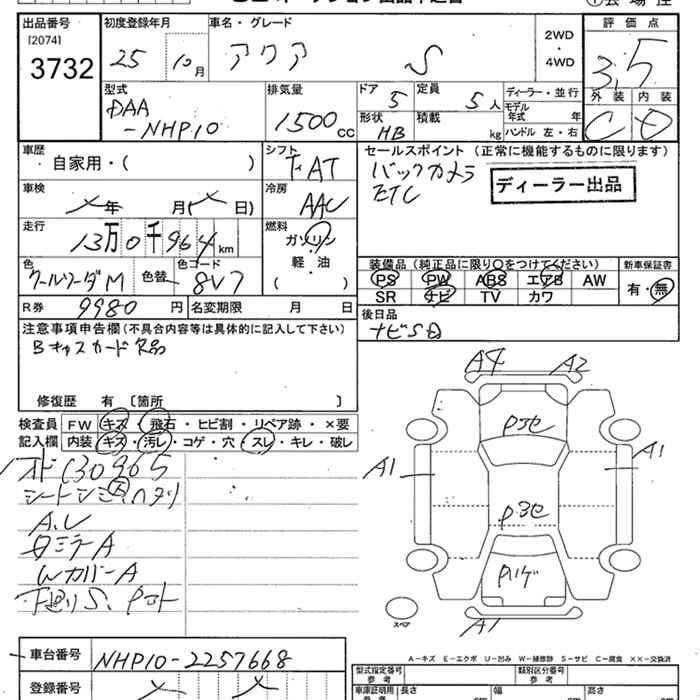 出品番号
[2074]
3732
初度登録年月
25 10月
車名・グレード
アクア S
2WD
・
4WD
評価点
3.5
外装 内装
C D
型式
DAA
-NHP10
排気量
1500cc
ドア
5
定員
5人
形状
HB
積載
kg
ディーラー・並行
モデル
年式 年
ハンドル 左・右
車歴
自家用・( )
シフト
F・AT
セールスポイント (正常に機能するものに限ります)
バックカメラ
ETC
ディーラー出品
車検
年 月( 日)
冷房
AAC
走行
13万0千964km
燃料
ガソリン
軽・油
( )
色
クールソーダM
色替
色コード
8V7
装備品(純正品に限り○をつけてください)
PS PW ABS エアB AW
SR ナビ TV カワ
新車保証書
有・無
R券
9980円
名変期限 月 日
後日品
ナビSD
注意事項申告欄(不具合内容等は具体的に記入して下さい)
Bキャスカード欠品
修復歴 有 〔箇所 〕
検査員
記入欄
FW キズ・飛石・ヒビ割・リペア跡・×要
内装 キズ・汚レ・コゲ・穴・スレ・キレ・破レ
A4 A2
P3セ
A1 A1
P3セ
A1
スペア
A-キズ E-エクボ U-凹み W-補修跡 S-サビ C-腐食 ××-交換済
車台番号
NHP10-2257668
登録番号
型式指定番号
参考
類別区分番号
参考
車庫証明用
参考
長さ cm
幅 cm
高さ